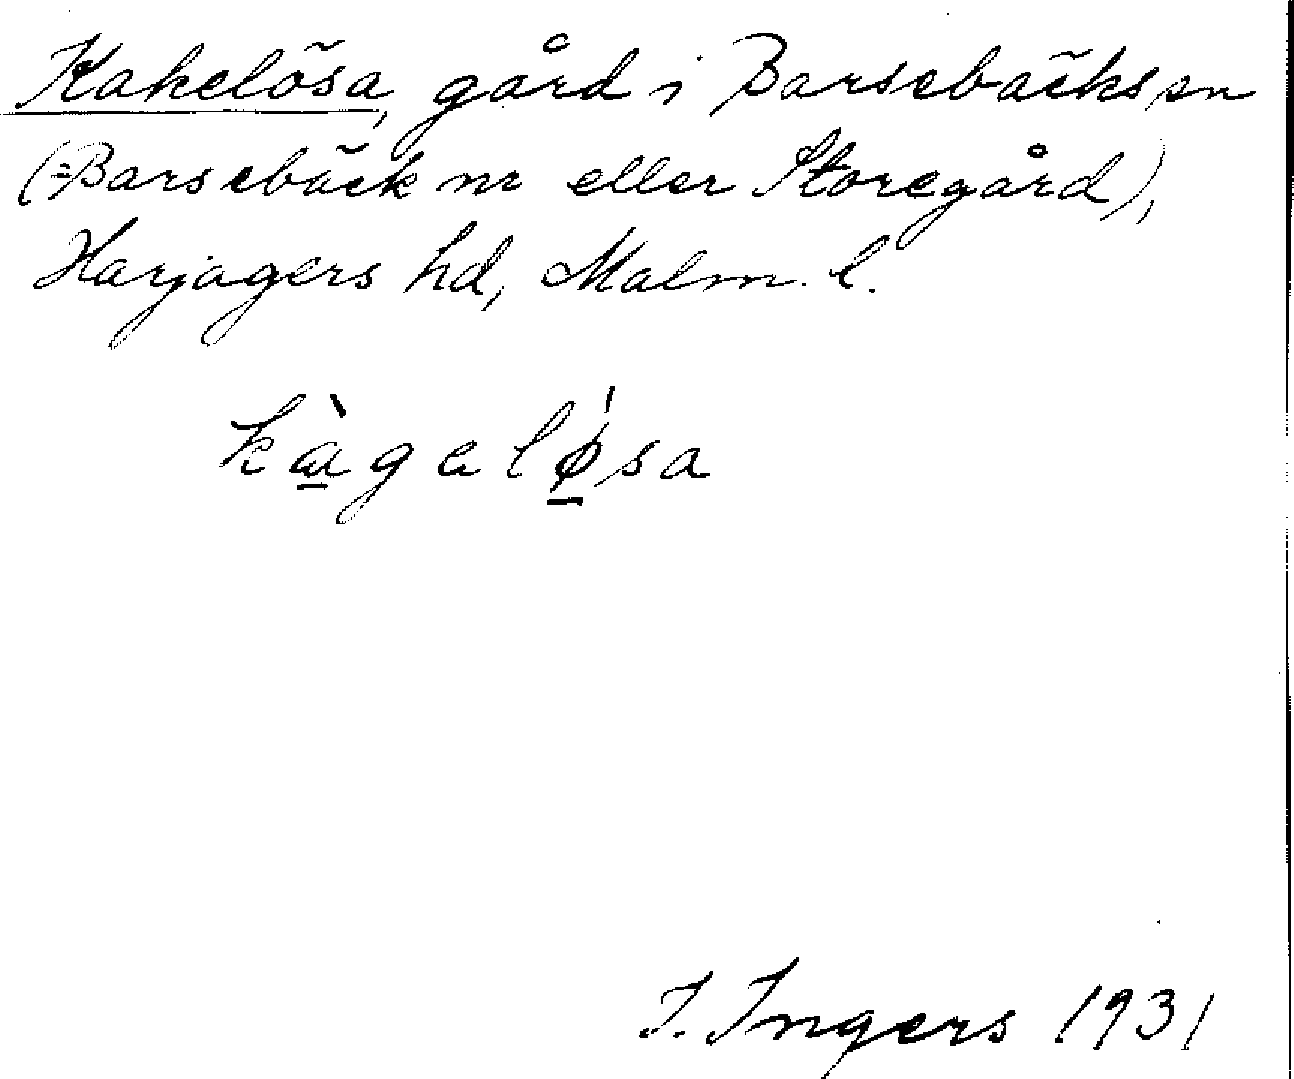 Kakelösa, gård i Barsebäcks sn
(=Barsebäck nr eller Storegård),
Harjagers hd, Malm. l.
kàgelǿsa
I. Ingers 1931